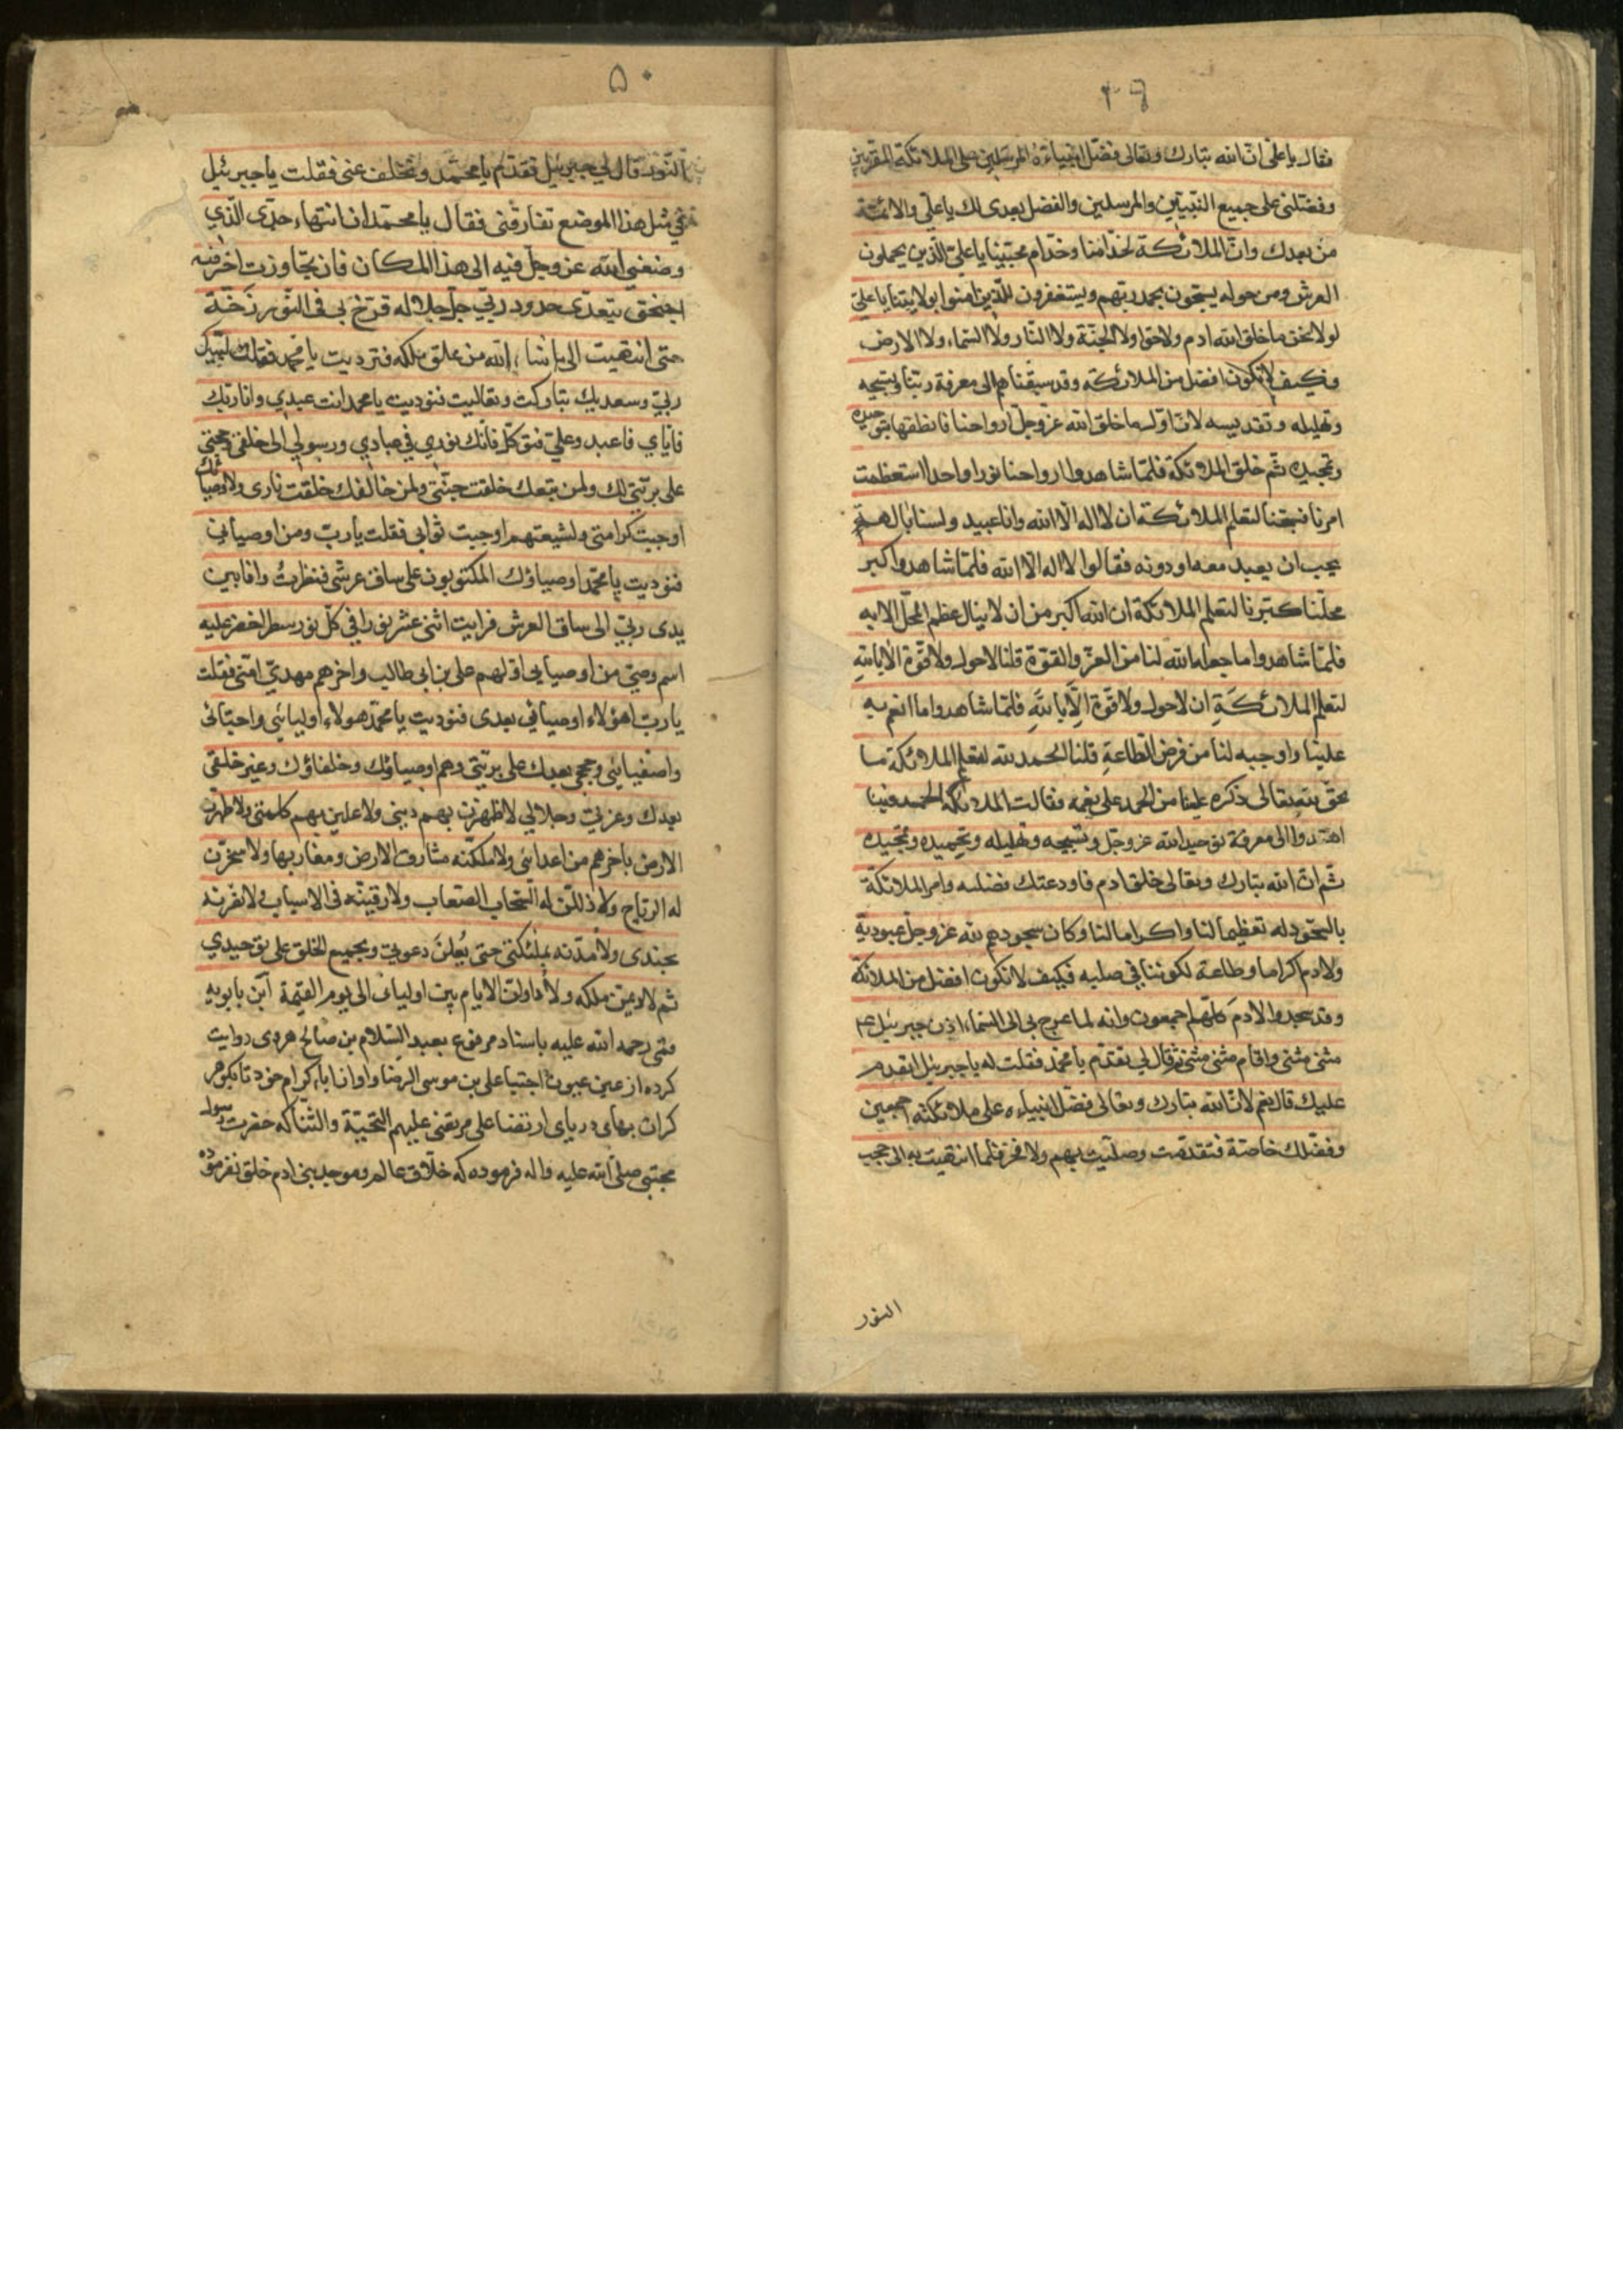 ۴۹
فقال یا علی ان الله تبارك وتعالی فضل انبیاءه المرسلین علی الملائكة المقربین
وفضلنی علی جمیع النبیین والمرسلین والفضل بعدی لك یا علی والائمة
من بعدك وان الملائكة لخدامنا وخدام محبینا یا علی الذین یحملون
العرش ومن حوله یسبحون بحمد ربهم ویستغفرون للذین امنوا بولایتنا یا علی
لولا نحن ما خلق الله ادم ولا حوا ولا الجنة ولا النار ولا السماء ولا الارض
وكیف لا نكون افضل من الملائكة وقد سبقناهم الی معرفة ربنا وتسبیحه
وتهلیله وتقدیسه لان اول ما خلق الله عز وجل ارواحنا فانطقها بتوحیده
وتمجیده ثم خلق الملائكة فلما شاهدوا ارواحنا نورا واحدا استعظمت
امرنا فسبحنا لتعلم الملائكة ان لا اله الا الله وانا عبید ولسنا بالهة
یجب ان یعبد معه او دونه فقالوا لا اله الا الله فلما شاهدوا كبر
محلنا كبرنا لتعلم الملائكة ان الله اكبر من ان لا ینال عظم المحل الا به
فلما شاهدوا ما جعله الله لنا من العز والقوة قلنا لا حول ولا قوة الا بالله
لتعلم الملائكة ان لا حول ولا قوة الا بالله فلما شاهدوا ما انعم به
علینا واوجبه لنا من فرض الطاعة قلنا الحمد لله لتعلم الملائكة ما
یحق لله تعالی ذكره علینا من الحمد علی نعمه فقالت الملائكة الحمد فبنا
اهتدوا الی معرفة توحید الله عز وجل وتسبیحه وتهلیله وتحمیده وتمجیده
ثم ان الله تبارك وتعالی خلق ادم فاودعتك فضلبه وامر الملائكة
بالسجود له تعظیما لنا واكراما لنا وكان سجودهم لله عز وجل عبودیة
ولادم اكراما وطاعة لكوننا فی صلبه فكیف لا نكون افضل من الملائكة
وقد سجدوا لادم كلهم اجمعون وانه لما عرج بی الی السماء اذن جبرئیل ع
مثنی مثنی واقام مثنی مثنی ثم قال لی تقدم یا محمد فقلت له یا جبرئیل اتقدم
علیك قال نعم لان الله تبارك وتعالی فضل انبیاءه علی ملائكته اجمعین
وفضلك خاصة فتقدمت وصلیت بهم ولا فخر فلما انتهیت به الی حجب
النور
۵۰
النور قال لی جبرئیل تقدم یا محمد وتخلف عنی فقلت یا جبرئیل
فی مثل هذا الموضع تفارقنی فقال یا محمد ان انتهاء حدی الذی
وضعنی الله عز وجل فیه الی هذا المكان فان تجاوزت احترقت
اجنحتی بتعدی حدود ربی جل جلاله فزخ بی فی النور زخة
حتی انتهیت الی ما شاء الله من علو ملكه فنودیت یا محمد فقلت لبیك
ربی وسعدیك تباركت وتعالیت فنودیت یا محمد انت عبدی وانا ربك
فایای فاعبد وعلی فتوكل فانك نوری فی عبادی ورسولی الی خلقی وحجتی
علی بریتی لك ولمن تبعك خلقت جنتی ولمن خالفك خلقت ناری ولاوصیائك
اوجبت كرامتی ولشیعتهم اوجبت ثوابی فقلت یا رب ومن اوصیائی
فنودیت یا محمد اوصیاؤك المكتوبون علی ساق عرشی فنظرت وانا بین
یدی ربی الی ساق العرش فرایت اثنی عشر نورا فی كل نور سطر اخضر علیه
اسم وصی من اوصیایی اولهم علی بن ابی طالب واخرهم مهدی امتی فقلت
یا رب اهؤلاء اوصیائی بعدی فنودیت یا محمد هولاء اولیائی واحبائی
واصفیائی وحججی بعدك علی بریتی وهم اوصیاؤك وخلفاؤك وخیر خلقی
بعدك وعزتی وجلالی لاظهرن بهم دینی ولاعلین بهم كلمتی ولاطهرن
الارض باخرهم من اعدائی ولاملكنه مشارق الارض ومغاربها ولاسخرن
له الریاح ولاذللن له السحاب الصعاب ولارقینه فی الاسباب ولانصرنه
بجندی ولامدنه بملئكتی حتی یعلن دعوتی ویجمع الخلق علی توحیدی
ثم لادیمن ملكه ولاداولن الایام بین اولیائی الی یوم القیمة ابن بابویه
قمی رحمه الله علیه باسناد مرفوع بعبد السلام بن صالح هروی روایت
كرده از عین عیون اجتبا علی بن موسی الرضا واو از اباء كرام خود تا بگوهر
گران بهای دریای ارتضا علی مرتضی علیهم التحیة والثنا كه حضرت رسول
مجتبی صلی الله علیه واله فرموده كه خلاق عالم وموجد بنی ادم خلق نفرموده